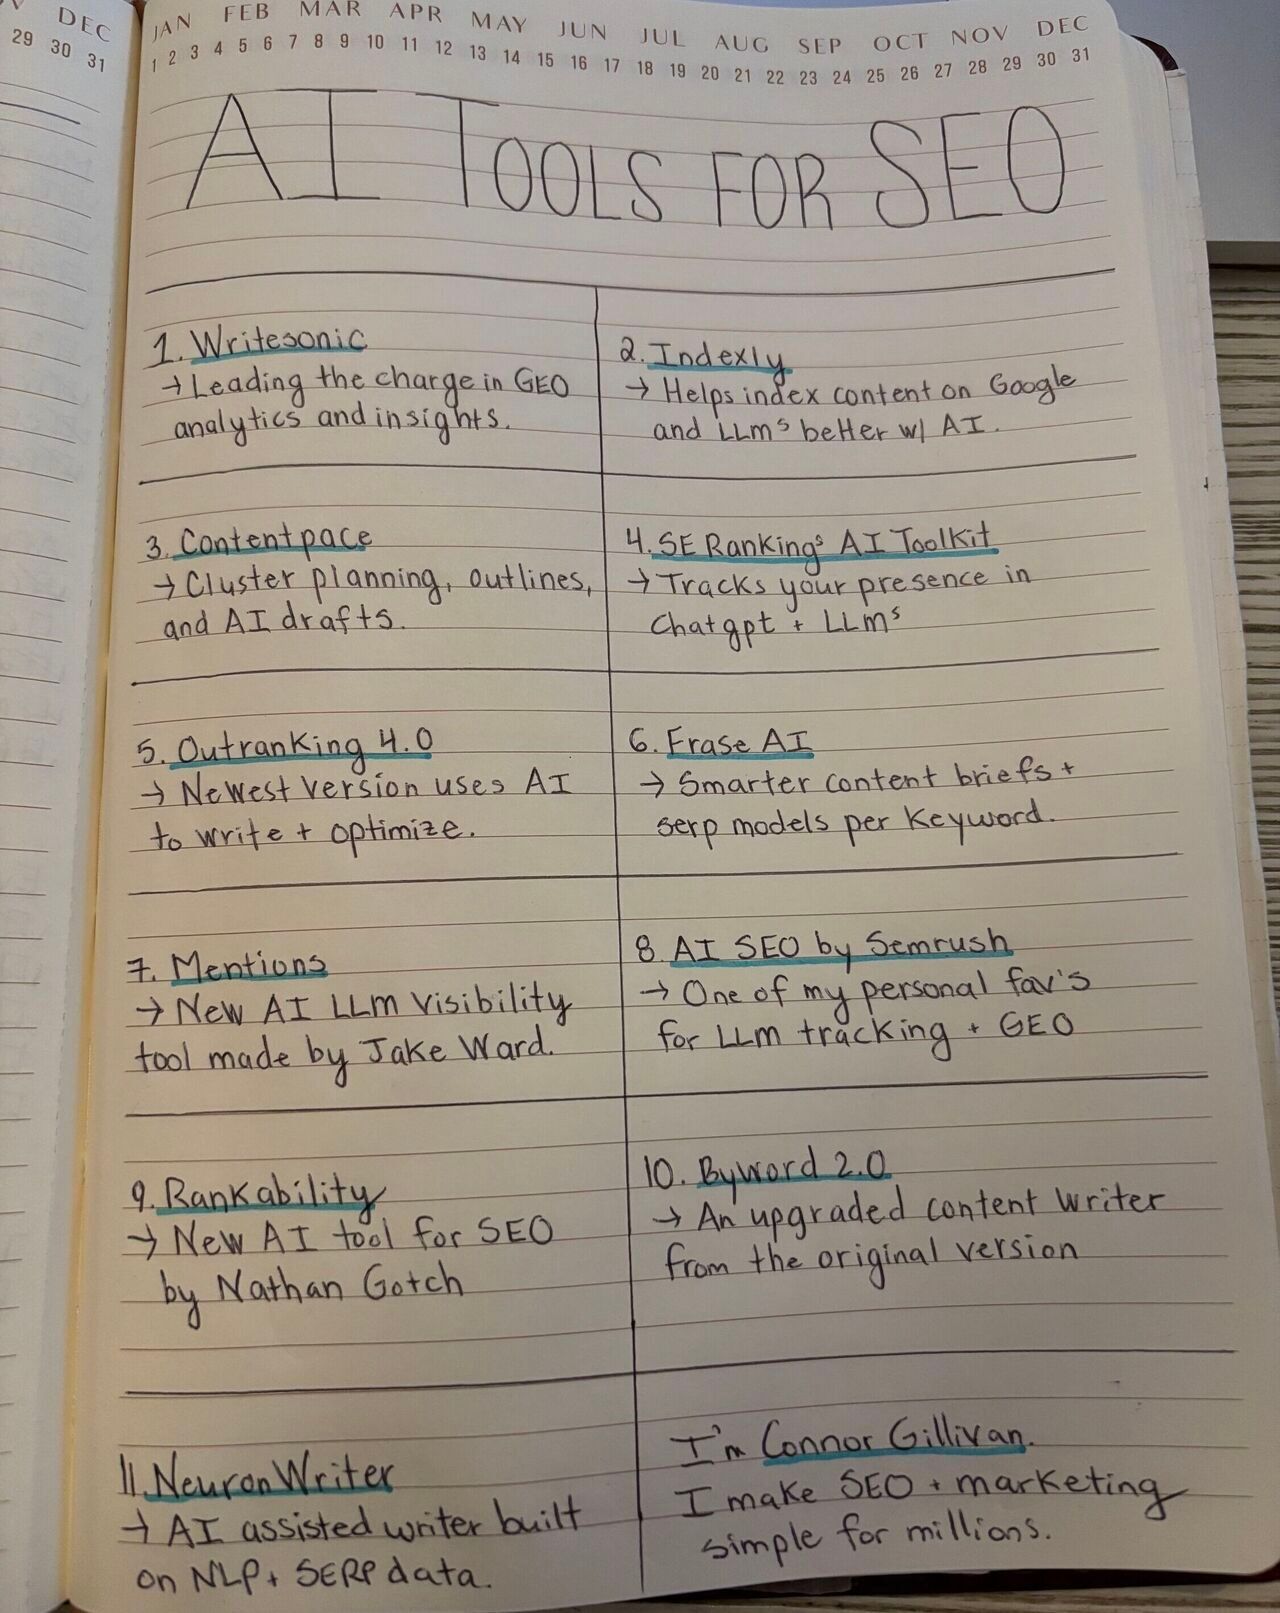 V DEC
29 30 31
JAN FEB MAR APR MAY JUN JUL AUG SEP OCT NOV DEC
1 2 3 4 5 6 7 8 9 10 11 12 13 14 15 16 17 18 19 20 21 22 23 24 25 26 27 28 29 30 31
AI TOOLS FOR SEO
1. Writesonic
→ Leading the charge in GEO
analytics and insights.
2. Indexly
→ Helps index content on Google
and LLMs better w/ AI.
3. Contentpace
→ Cluster planning, outlines,
and AI drafts.
4. SE Rankings AI Toolkit
→ Tracks your presence in
Chatgpt + LLMs
5. Outranking 4.0
→ Newest version uses AI
to write + optimize.
6. Frase AI
→ Smarter content briefs +
serp models per Keyword.
7. Mentions
→ New AI LLM visibility
tool made by Jake Ward.
8. AI SEO by Semrush
→ One of my personal fav's
for LLM tracking + GEO
9. Rankability
→ New AI tool for SEO
by Nathan Gotch
10. Byword 2.0
→ An upgraded content writer
from the original version
11. NeuronWriter
→ AI assisted writer built
on NLP + SERP data.
I'm Connor Gillivan.
I make SEO + marketing
simple for millions.